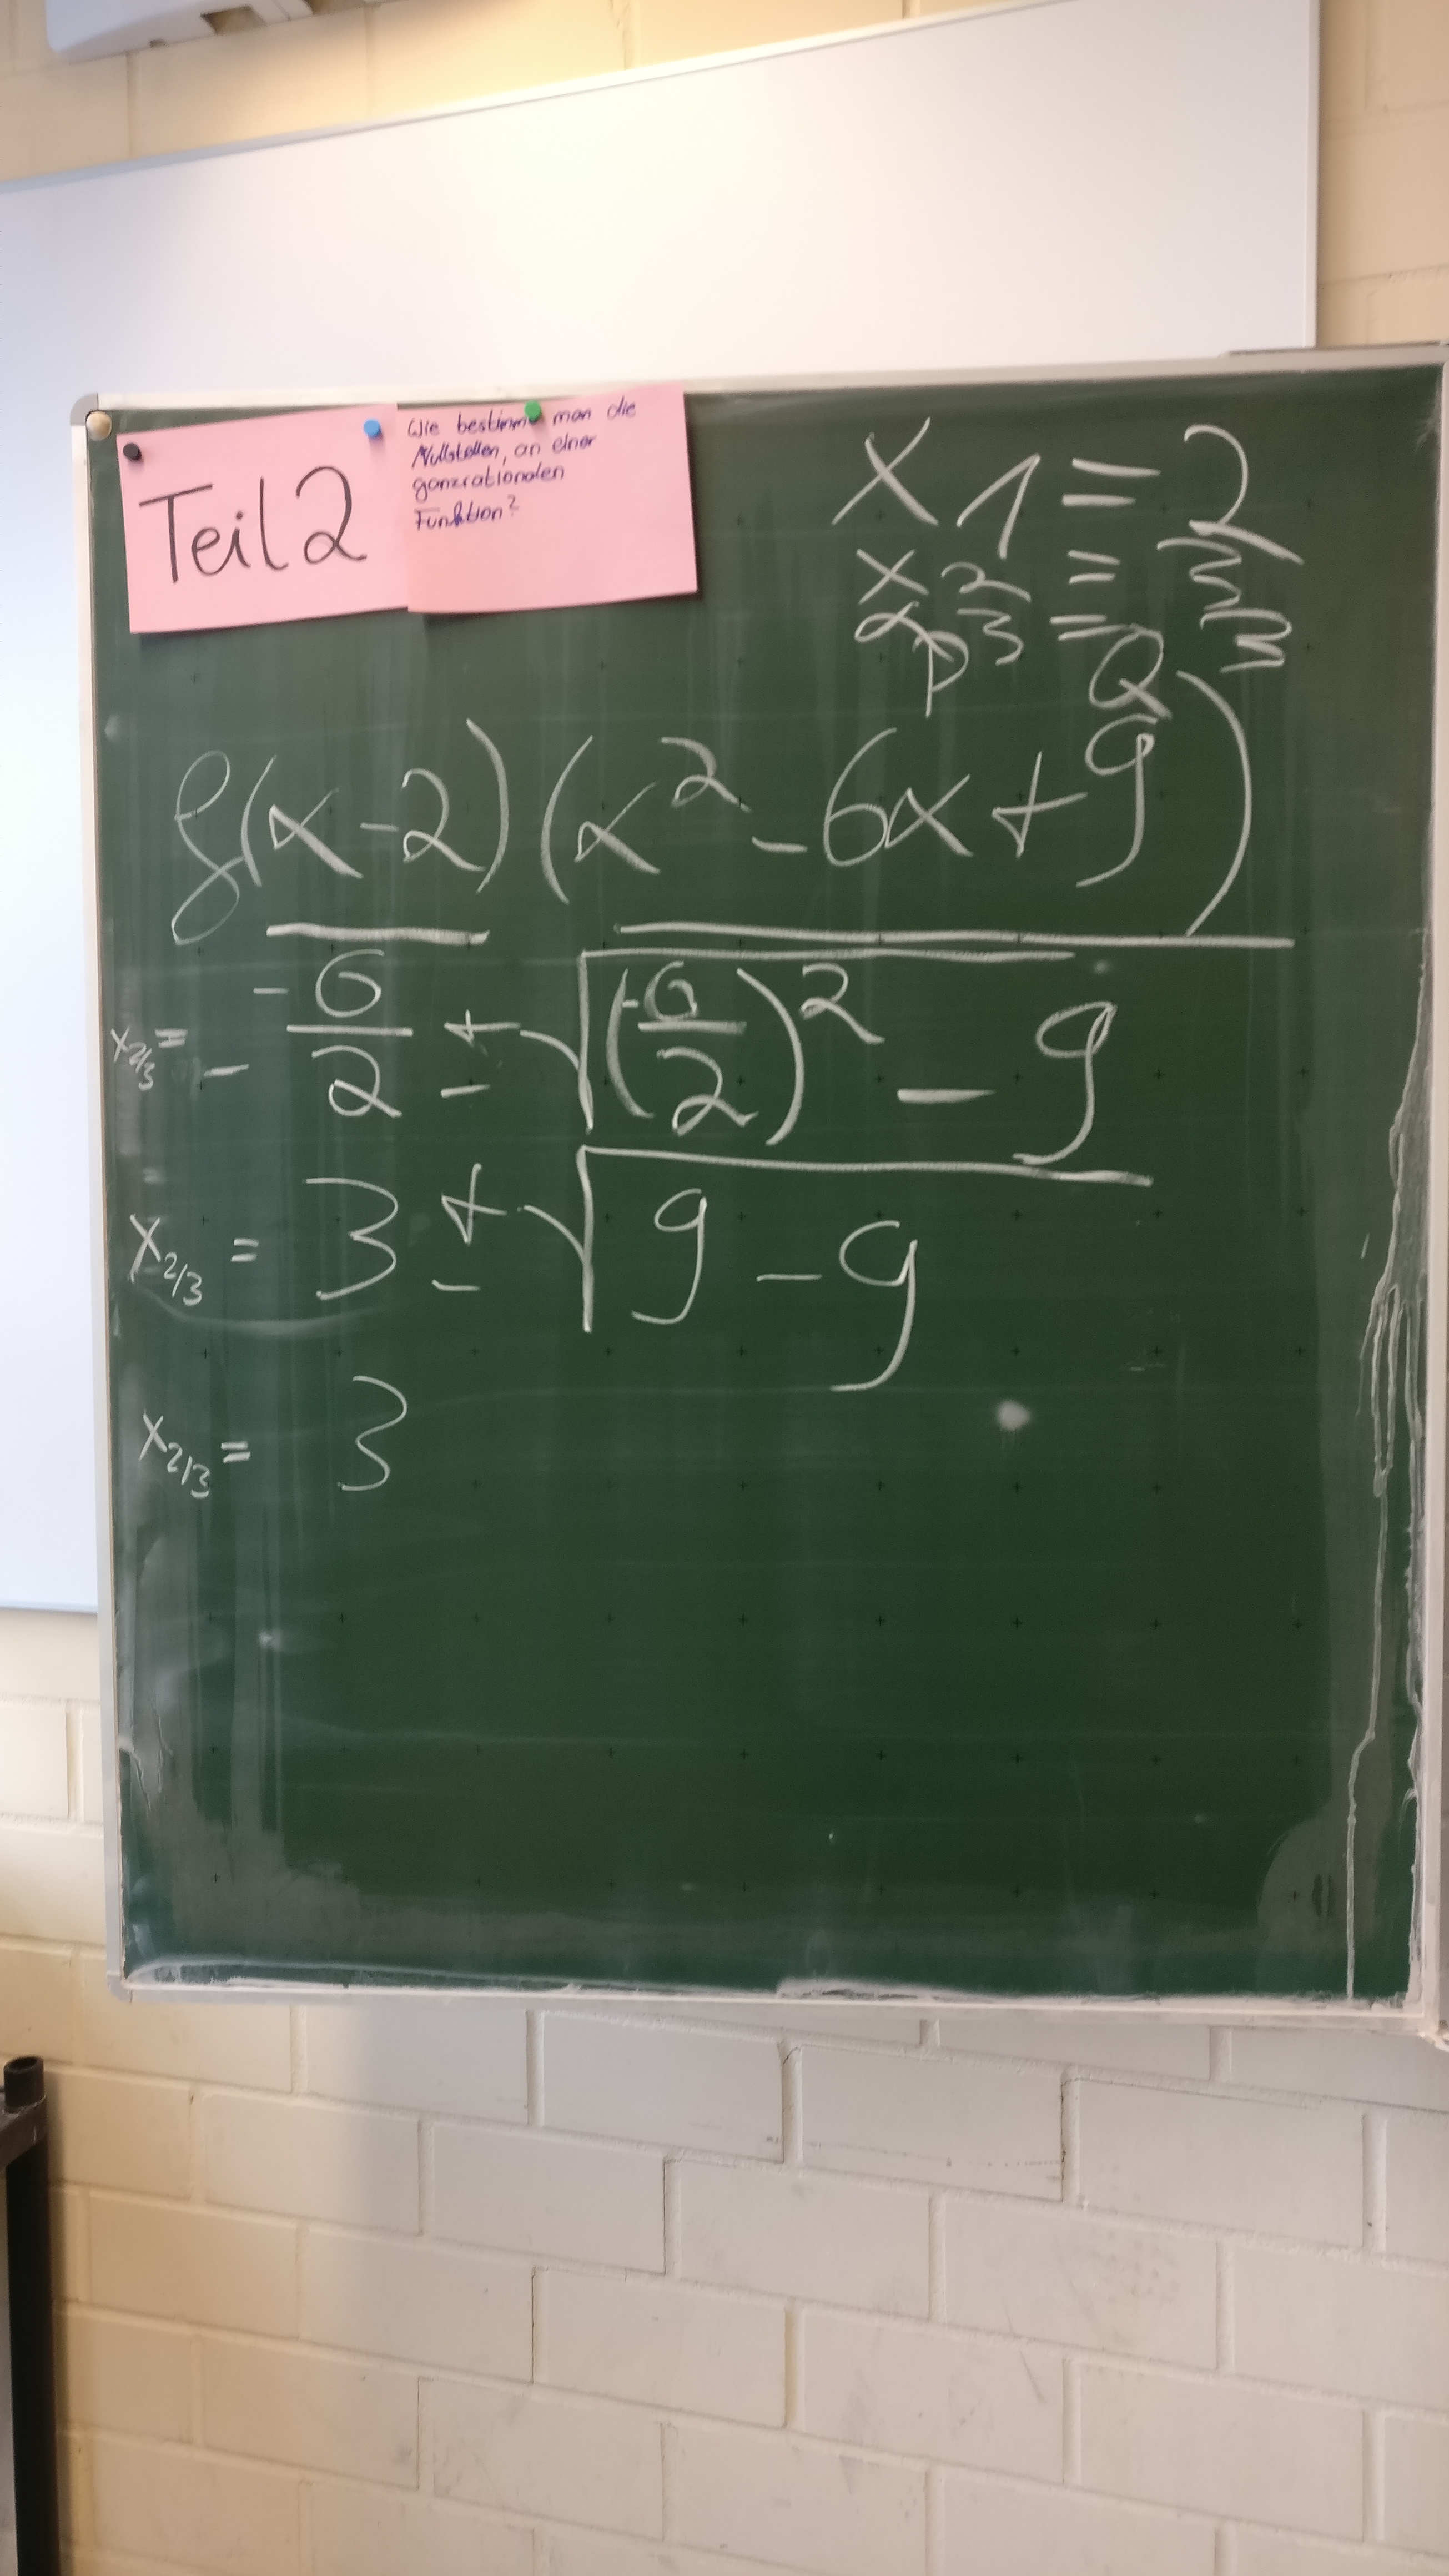 Teil 2
Wie bestimmt man die
Nullstellen, an einer
ganzrationalen
Funktion?
x1 = 2
x2 = 3
x3 = 3
p Q
f(x-2)(x² - 6x + 9)
x2/3 = - -6/2 ± √((-6/2)² - 9
x2/3 = 3 ± √9 - 9
x2/3 = 3